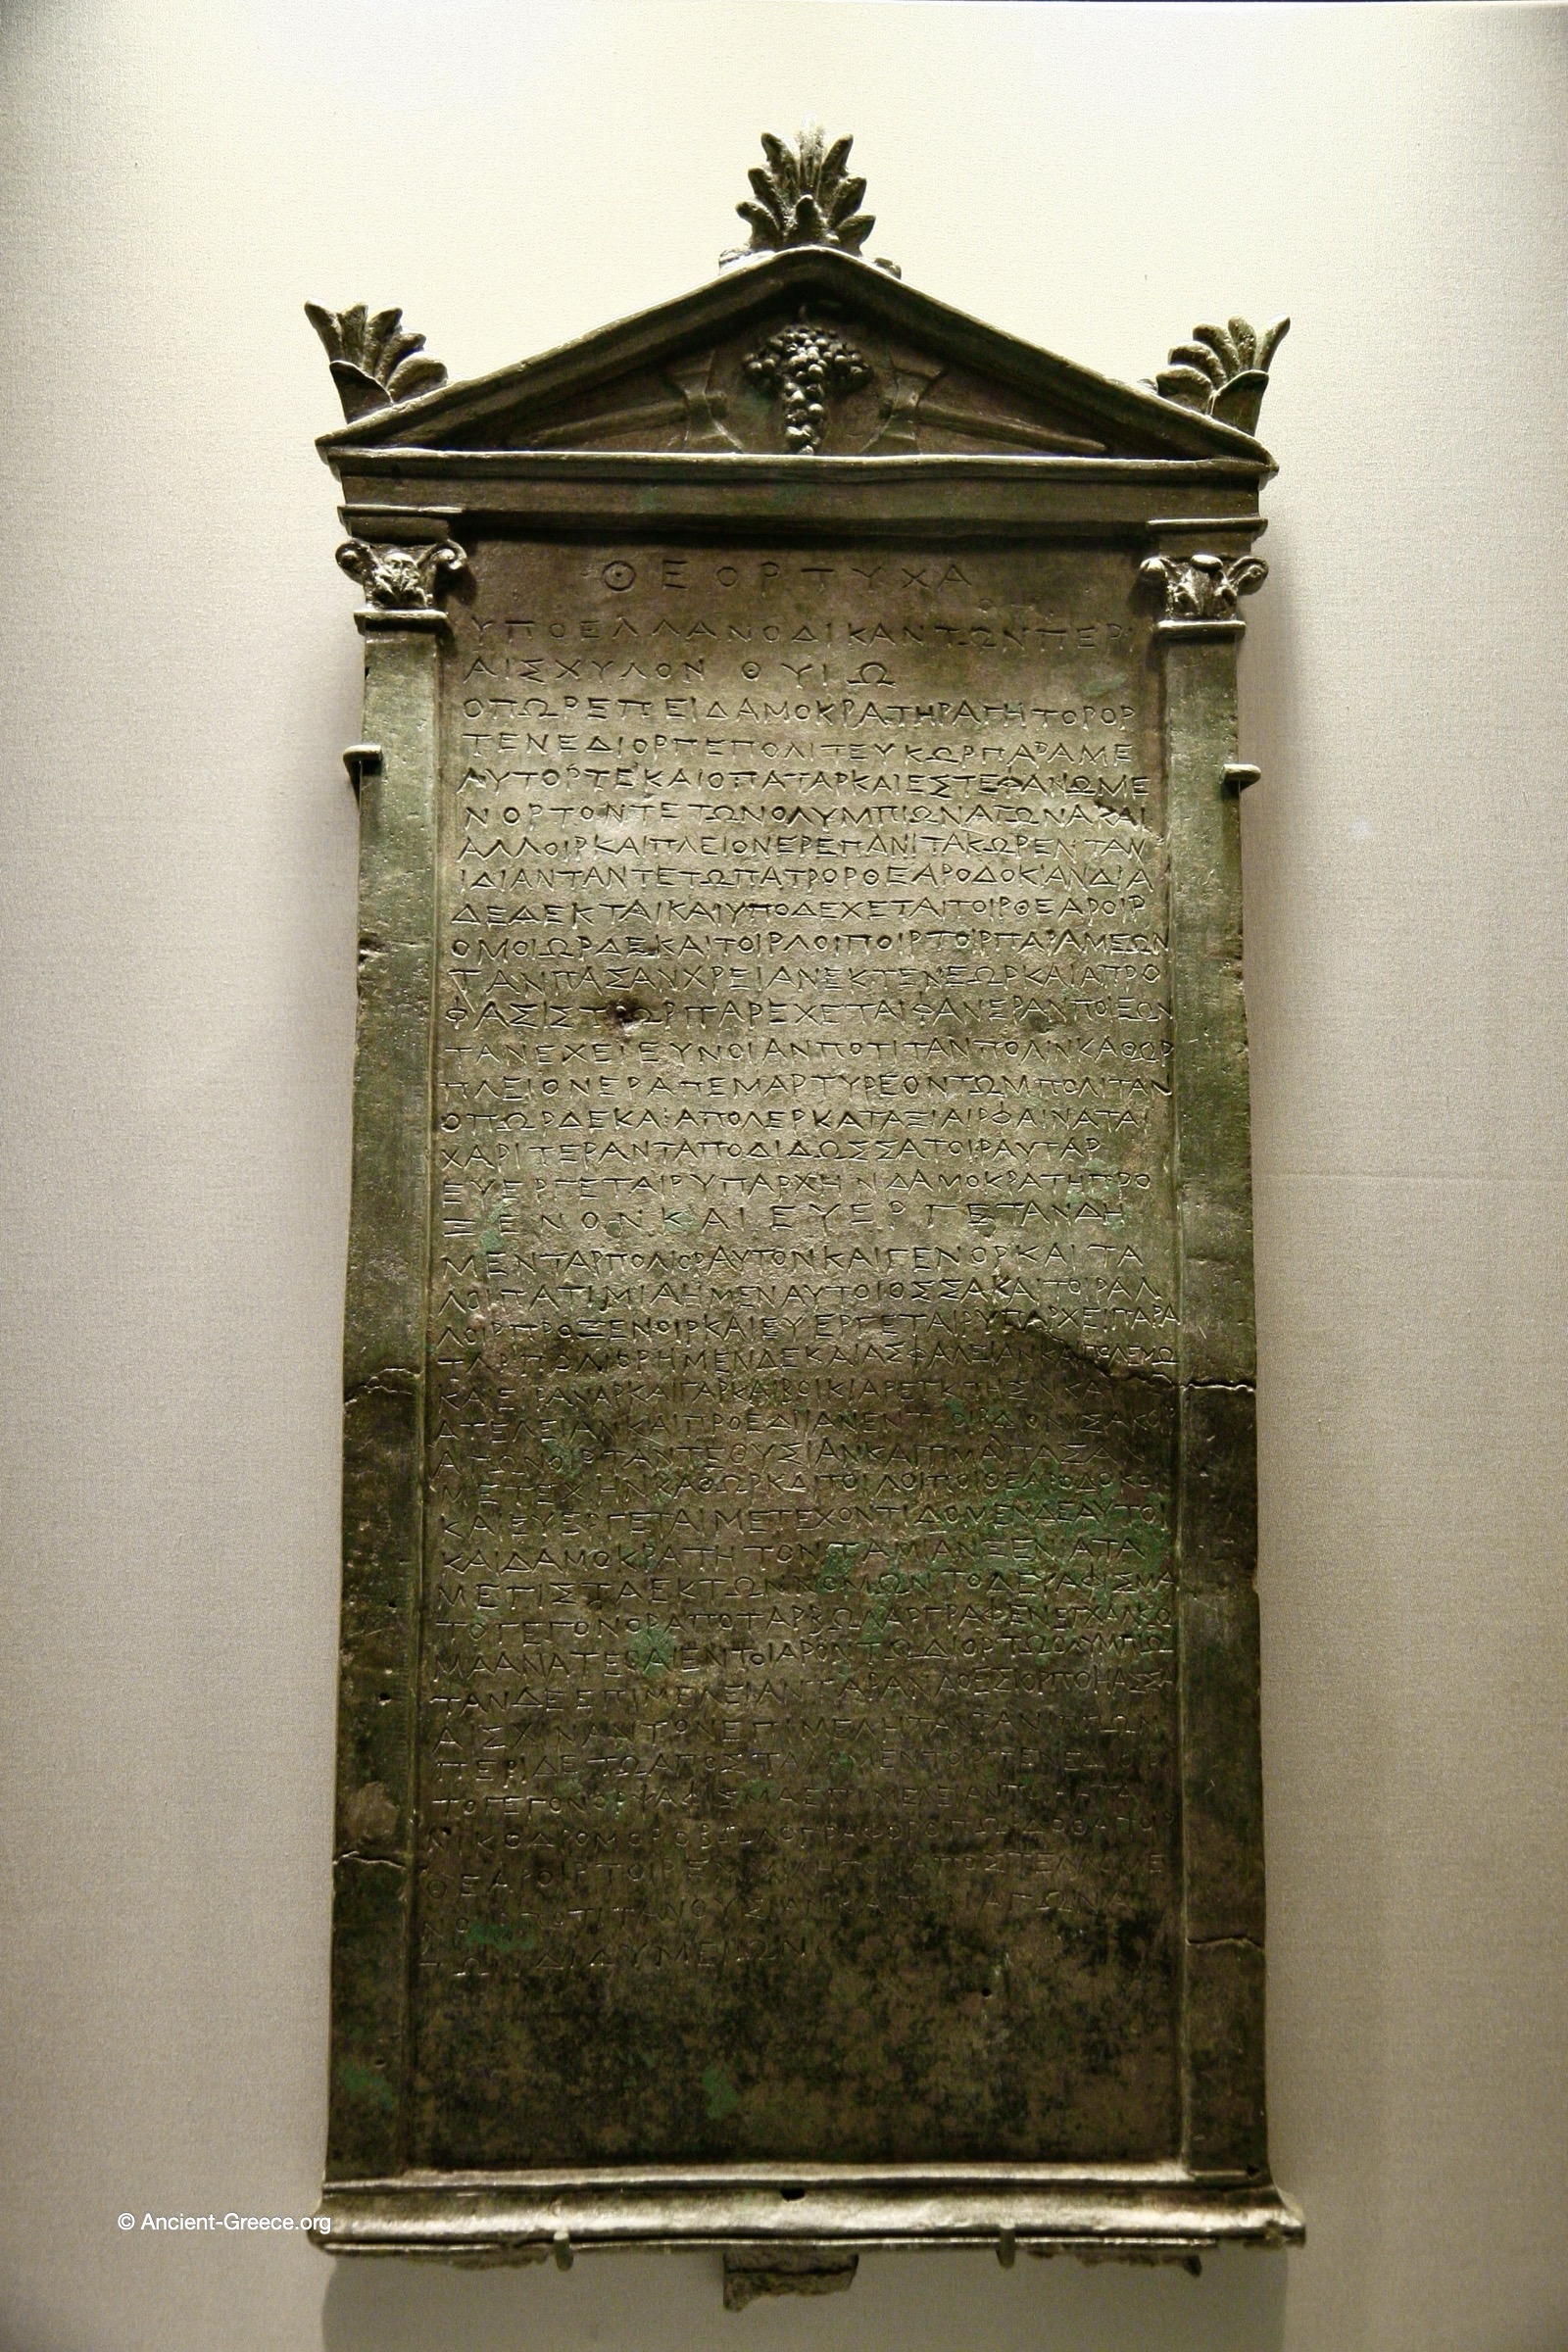 ΘΕΟΡΤΥΧΑ
ΥΠΟΕΛΛΑΝΟΔΙΚΑΝΤΩΝΠΕΡΙ
ΑΙΣΧΥΛΟΝ ΘΥΙΩ
ΟΠΩΡΕΠΕΙΔΑΜΟΚΡΑΤΗΡΑΓΗΤΟΡΟΡ
ΤΕΝΕΔΙΟΡΠΕΠΟΛΙΤΕΥΚΩΡΠΑΡΑΜΕ
ΑΥΤΟΡΤΕΚΑΙΟΠΑΤΑΡΚΑΙΕΣΤΕΦΑΝΩΜΕ
ΝΟΡΤΟΝΤΕΤΩΝΟΛΥΜΠΙΩΝΑΓΩΝΑΚΑΙ
ΑΛΛΟΙΡΚΑΙΠΛΕΙΟΝΕΡΕΠΑΝΙΤΑΚΩΡΕΝΤΑΝ
ΙΔΙΑΝΤΑΝΤΕΤΩΠΑΤΡΟΡΘΕΑΡΟΔΟΚΙΑΝΔΙΑ
ΔΕΔΕΚΤΑΙΚΑΙΥΠΟΔΕΧΕΤΑΙΤΟΙΡΘΕΑΡΟΙΡ
ΟΜΟΙΩΡΔΕΚΑΙΤΟΙΡΛΟΙΠΟΙΡΤΟΙΡΠΑΡΑΜΕΩΝ
ΤΑΝΠΑΣΑΝΧΡΕΙΑΝΕΚΤΕΝΕΩΡΚΑΙΑΠΡΟ
ΦΑΣΙΣΤΩΡΠΑΡΕΧΕΤΑΙΦΑΝΕΡΑΝΠΟΙΕΩΝ
ΤΑΝΕΧΕΙΕΥΝΟΙΑΝΠΟΤΙΤΑΝΠΟΛΙΝΚΑΘΩΡ
ΠΛΕΙΟΝΕΡΑΠΕΜΑΡΤΥΡΕΟΝΤΩΜΠΟΛΙΤΑΝ
ΟΠΩΡΔΕΚΑΙΑΠΟΛΕΡΚΑΤΑΞΙΑΙΡΦΑΙΝΑΤΑΙ
ΧΑΡΙΤΕΡΑΝΤΑΠΟΔΙΔΩΣΣΑΤΟΙΡΑΥΤΑΡ
ΕΥΕΡΓΕΤΑΙΡΥΠΑΡΧΗΝΔΑΜΟΚΡΑΤΗΠΡΟ
ΞΕΝΟΝΚΑΙΕΥΕΡΓΕΤΑΝΔΗ
ΜΕΝΤΑΡΠΟΛΙΟΡΑΥΤΟΝΚΑΙΓΕΝΟΡΚΑΙΤΑ
ΛΟΙΠΑΤΙΜΙΑΗΜΕΝΑΥΤΟΙΟΣΣΑΚΑΙΤΟΙΡΑΛ
ΛΟΙΡΠΡΟΞΕΝΟΙΡΚΑΙΕΥΕΡΓΕΤΑΙΡΥΠΑΡΧΕΙΠΑΡΑ
ΤΑΡΠΟΛΙΟΡΗΜΕΝΔΕΚΑΙΑΣΦΑΛΕΙΑΝΚΑΙΠΟΛΕΜΩ
ΚΑΙΕΙΡΑΝΑΡΚΑΙΓΑΡΚΑΙΒΟΙΚΙΑΡΕΓΚΤΗΣΙΝΚΑΙ
ΑΤΕΛΕΙΑΝΚΑΙΠΡΟΕΔΡΙΑΝΕΝΤΟΙΡΔΙΟΝΥΣΙΑΚΟΙΡ
ΑΓΩΝΟΙΡΤΑΝΤΕΘΥΣΙΑΝΚΑΙΤΙΜΑΝΠΑΣΑΝ
ΜΕΤΕΧΗΝΚΑΘΩΡΚΑΙΤΟΙΛΟΙΠΟΙΘΕΑΡΟΔΟΚΟΙ
ΚΑΙΕΥΕΡΓΕΤΑΙΜΕΤΕΧΟΝΤΙΔΟΜΕΝΔΕΑΥΤΟΙ
ΚΑΙΔΑΜΟΚΡΑΤΗΤΟΝΤΑΜΙΑΝΞΕΝΙΑΤΑ
ΜΕΓΙΣΤΑΕΚΤΩΝΝΟΜΩΝΤΟΔΕΨΑΦΙΣΜΑ
ΤΟΓΕΓΟΝΟΡΑΠΟΤΑΡΒΩΛΑΡΓΡΑΦΕΝΕΓΧΑΛΚΩ
ΜΑΑΝΑΤΕΘΑΙΕΝΤΟΙΑΡΟΝΤΩΔΙΟΡΤΩΟΛΥΜΠΙΩ
ΤΑΝΔΕΕΠΙΜΕΛΕΙΑΝΤΑΡΑΝΑΘΕΣΙΟΡΠΟΙΗΑΣΣΑΙ
ΑΙΣΧΙΝΑΝΤΟΝΕΠΙΜΕΛΗΤΑΝΤΑΝΙΠΠΩΝ
ΠΕΡΙΔΕΤΩΑΠΟΣΤΑΛΑΜΕΝΤΟΙΡΤΕΝΕΔΙΟΙΡ
ΤΟΓΕΓΟΝΟΡΨΑΦΙΣΜΑΕΠΙΜΕΛΕΙΑΝΠΟΙΗΑΤΑΙ
ΝΙΚΟΔΡΟΜΟΡΟΒΩΛΟΓΡΑΦΟΡΟΠΩΡΔΟΘΑΙΤΟΙΡ
ΘΕΑΡΟΙΡΤΟΙΡΕΜΜΙΛΗΤΟΝΑΠΟΣΤΕΛΛΟΜΕ
ΝΟΙΡΠΟΤΙΤΑΝΘΥΣΙΑΝΚΑΙΤΟΝΑΓΩΝΑ
ΤΩΝΔΙΔΥΜΕΙΩΝ
© Ancient-Greece.org